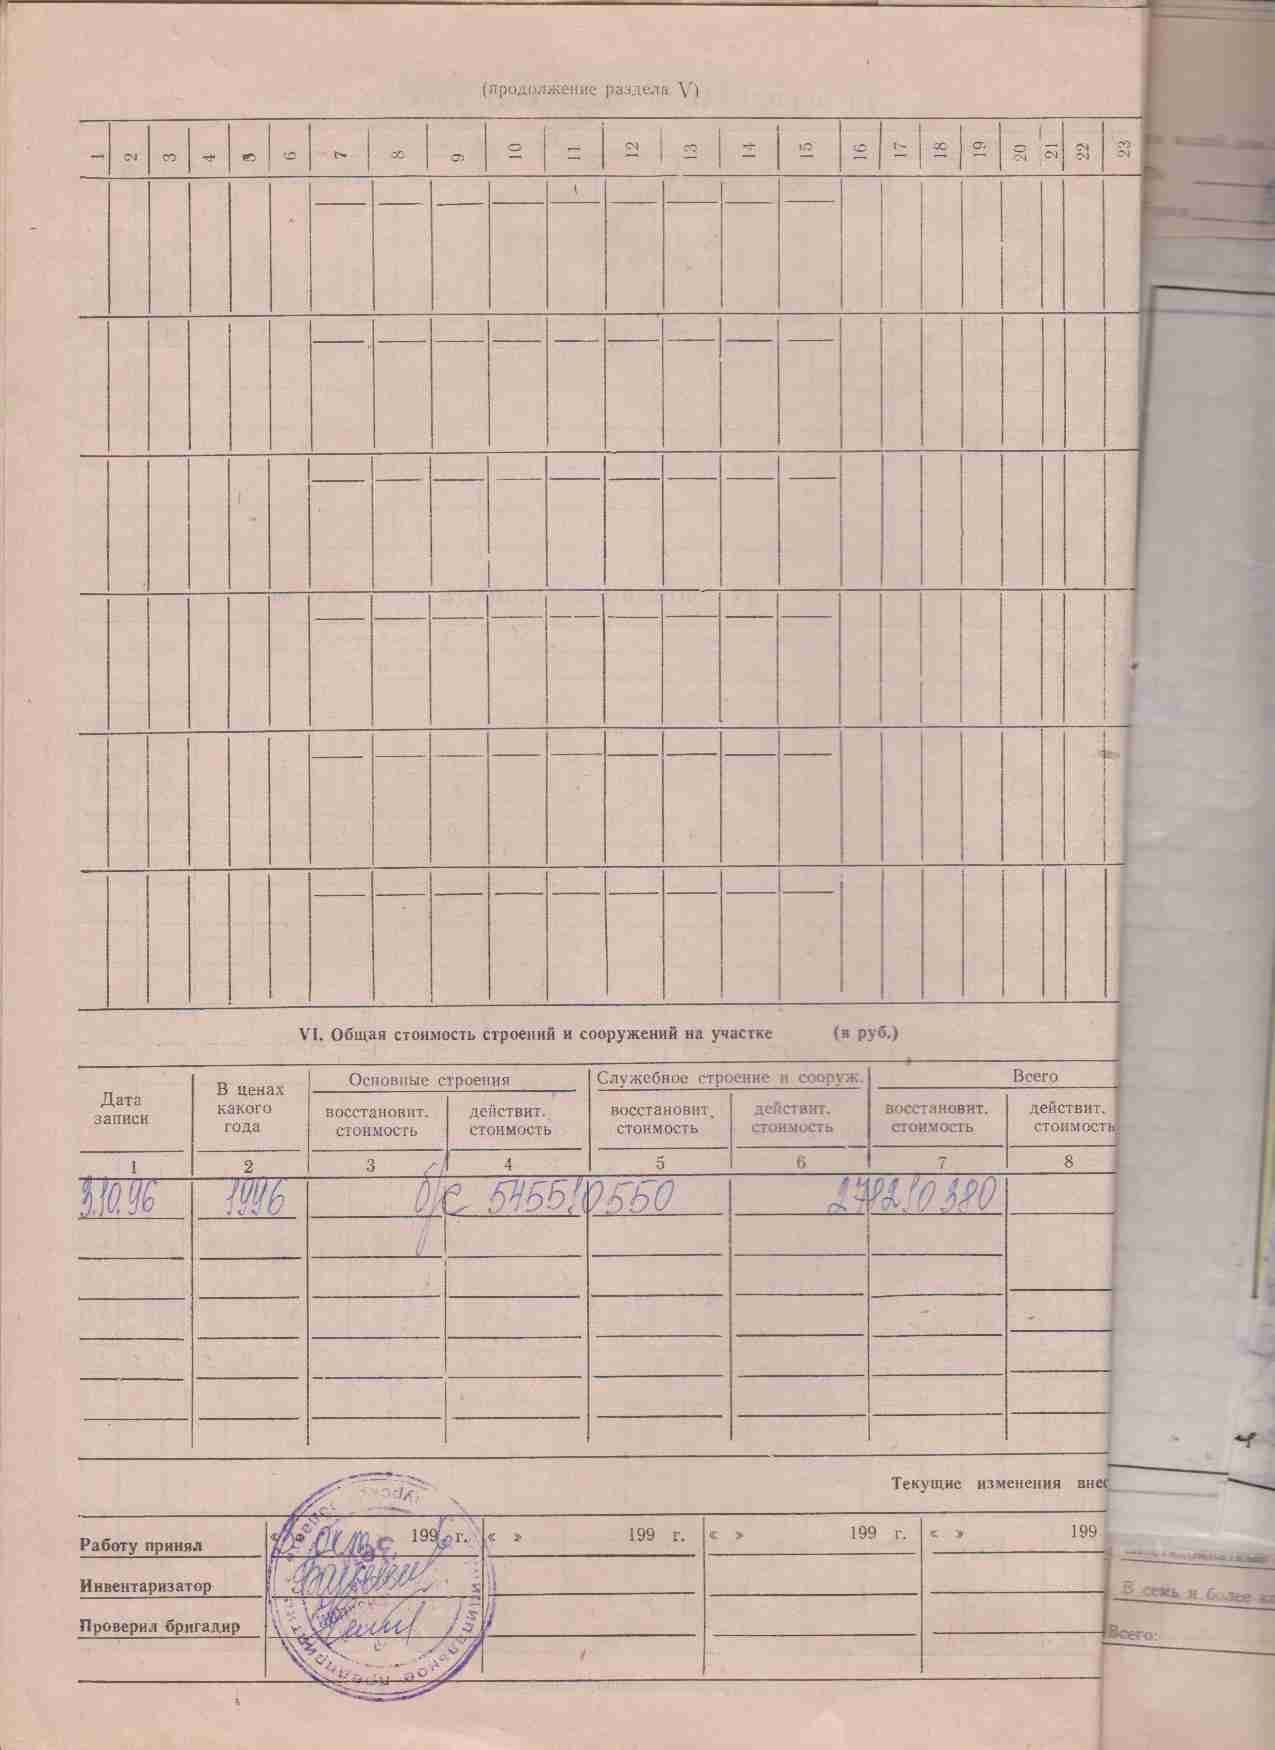 (продолжение раздела V)
1 2 3 4 5 6 7 8 9 10 11 12 13 14 15 16 17 18 19 20 21 22 23
VI. Общая стоимость строений и сооружений на участке (в руб.)
Дата записи
В ценах какого года
Основные строения
Служебное строение и сооруж.
Всего
восстановит. стоимость
действит. стоимость
восстановит. стоимость
действит. стоимость
восстановит. стоимость
действит. стоимость
1 2 3 4 5 6 7 8
3.10.96 1996 б/с 545510550 278210380
Текущие изменения внес
Работу принял 199 6 г. « » 199 г. « » 199 г. « » 199
Инвентаризатор
Проверил бригадир
В семь и более
Всего: